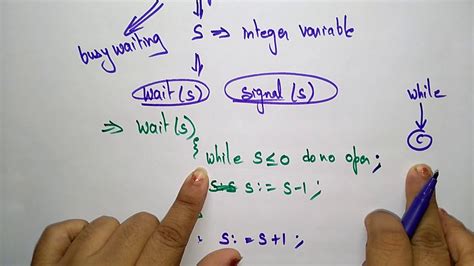 busy waiting
S ⇒ integer variable
wait(s) signal(s)
while
⇒ wait(s)
{ while S≤0 do no oper;
S:= S-1;
: S:= S+1;